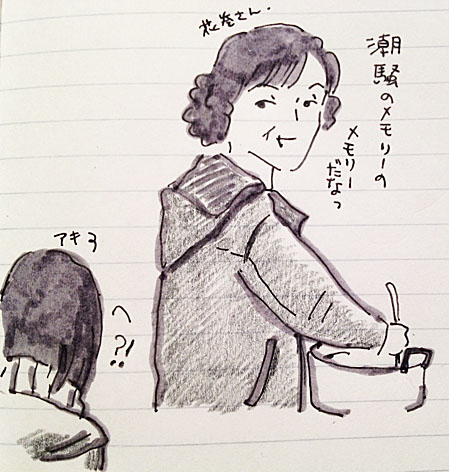 花巻さん.
潮騒のメモリーの
メモリー
だなっ
アキヨ
へ?!